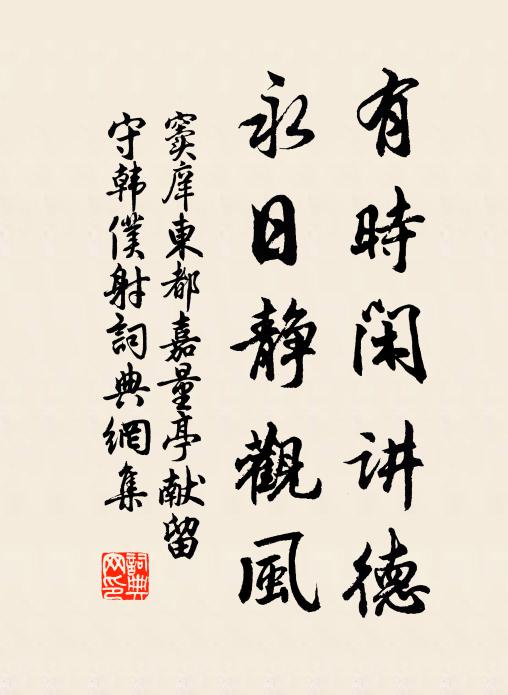 有時闲讲德
永日静觀風
窦庠東都嘉量亭献留
守韩僕射詞典網集
詞典
网印